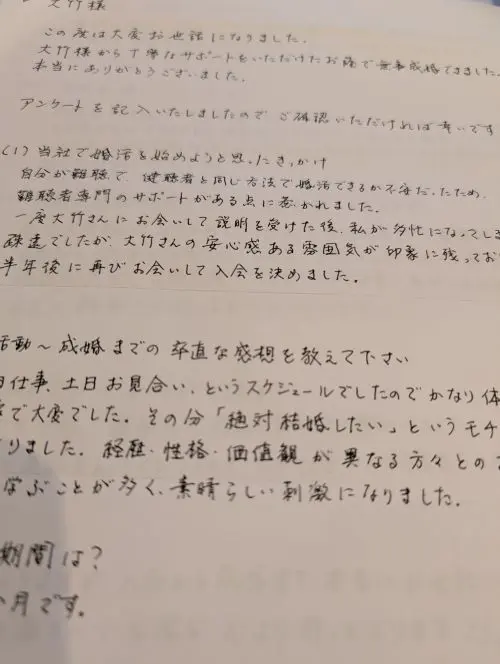 大竹様
この度は大変お世話になりました。
大竹様から丁寧なサポートをいただけたお陰で無事成婚できました。
本当にありがとうございました。
アンケートを記入いたしましたのでご確認いただければ幸いです
(1) 当社で婚活を始めようと思ったきっかけ
自分が難聴で、健聴者と同じ方法で婚活できるか不安だったため、
難聴者専門のサポートがある点に惹かれました。
一度大竹さんにお会いして説明を受けた後、私が多忙になってしま
疎遠でしたが、大竹さんの安心感ある雰囲気が印象に残ってお
半年後に再びお会いして入会を決めました。
活動～成婚までの率直な感想を教えて下さい
日仕事、土日お見合い、というスケジュールでしたのでかなり体
で大変でした。その分「絶対結婚したい」というモチ
りました。経歴・性格・価値観が異なる方々との
学ぶことが多く、素晴らしい刺激になりました。
期間は?
月です。